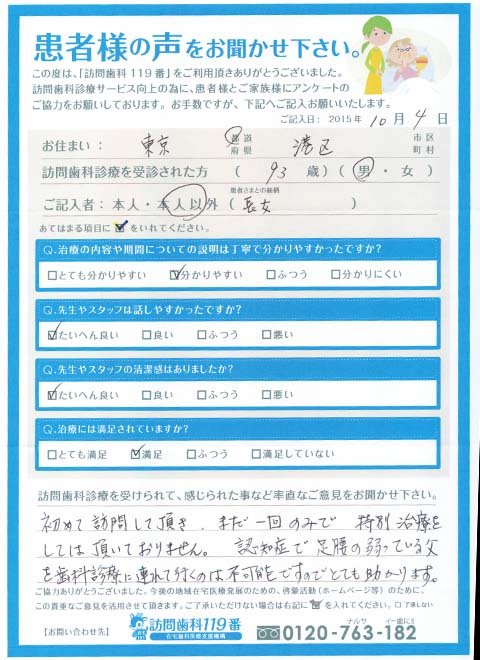 患者様の声をお聞かせ下さい。
この度は、「訪問歯科119番」をご利用頂きありがとうございました。
訪問歯科診療サービス向上の為に、患者様とご家族様にアンケートの
ご協力をお願いしております。お手数ですが、下記へご記入お願いいたします。
ご記入日：2015年 10月 4日
お住まい： 東京 都道府県 港区 市区町村
訪問歯科診療を受診された方（ 93 歳）（男・女）
ご記入者：本人・本人以外（患者さまとの続柄 長女 ）
あてはまる項目に☑をいれてください。
Q.治療の内容や期間についての説明は丁寧で分かりやすかったですか？
□とても分かりやすい ☑分かりやすい □ふつう □分かりにくい
Q.先生やスタッフは話しやすかったですか？
☑たいへん良い □良い □ふつう □悪い
Q.先生やスタッフの清潔感はありましたか？
☑たいへん良い □良い □ふつう □悪い
Q.治療には満足されていますか？
□とても満足 ☑満足 □ふつう □満足していない
訪問歯科診療を受けられて、感じられた事など率直なご意見をお聞かせ下さい。
初めて訪問して頂き、まだ一回のみで 特別治療を
しては頂いておりません。 認知症で足腰の弱っている父
を歯科診療に連れて行くのは不可能ですのでとても助かります。
ご協力ありがとうございました。今後の地域在宅医療発展のための、啓発活動（ホームページ等）のために、
この貴重なご意見を活用させて頂きます。ご了承いただけない場合は右記に☑を入れてください。□了承しない
【お問い合わせ先】
訪問歯科119番
在宅歯科医療支援機構
ナルサ イー歯に!!
0120-763-182